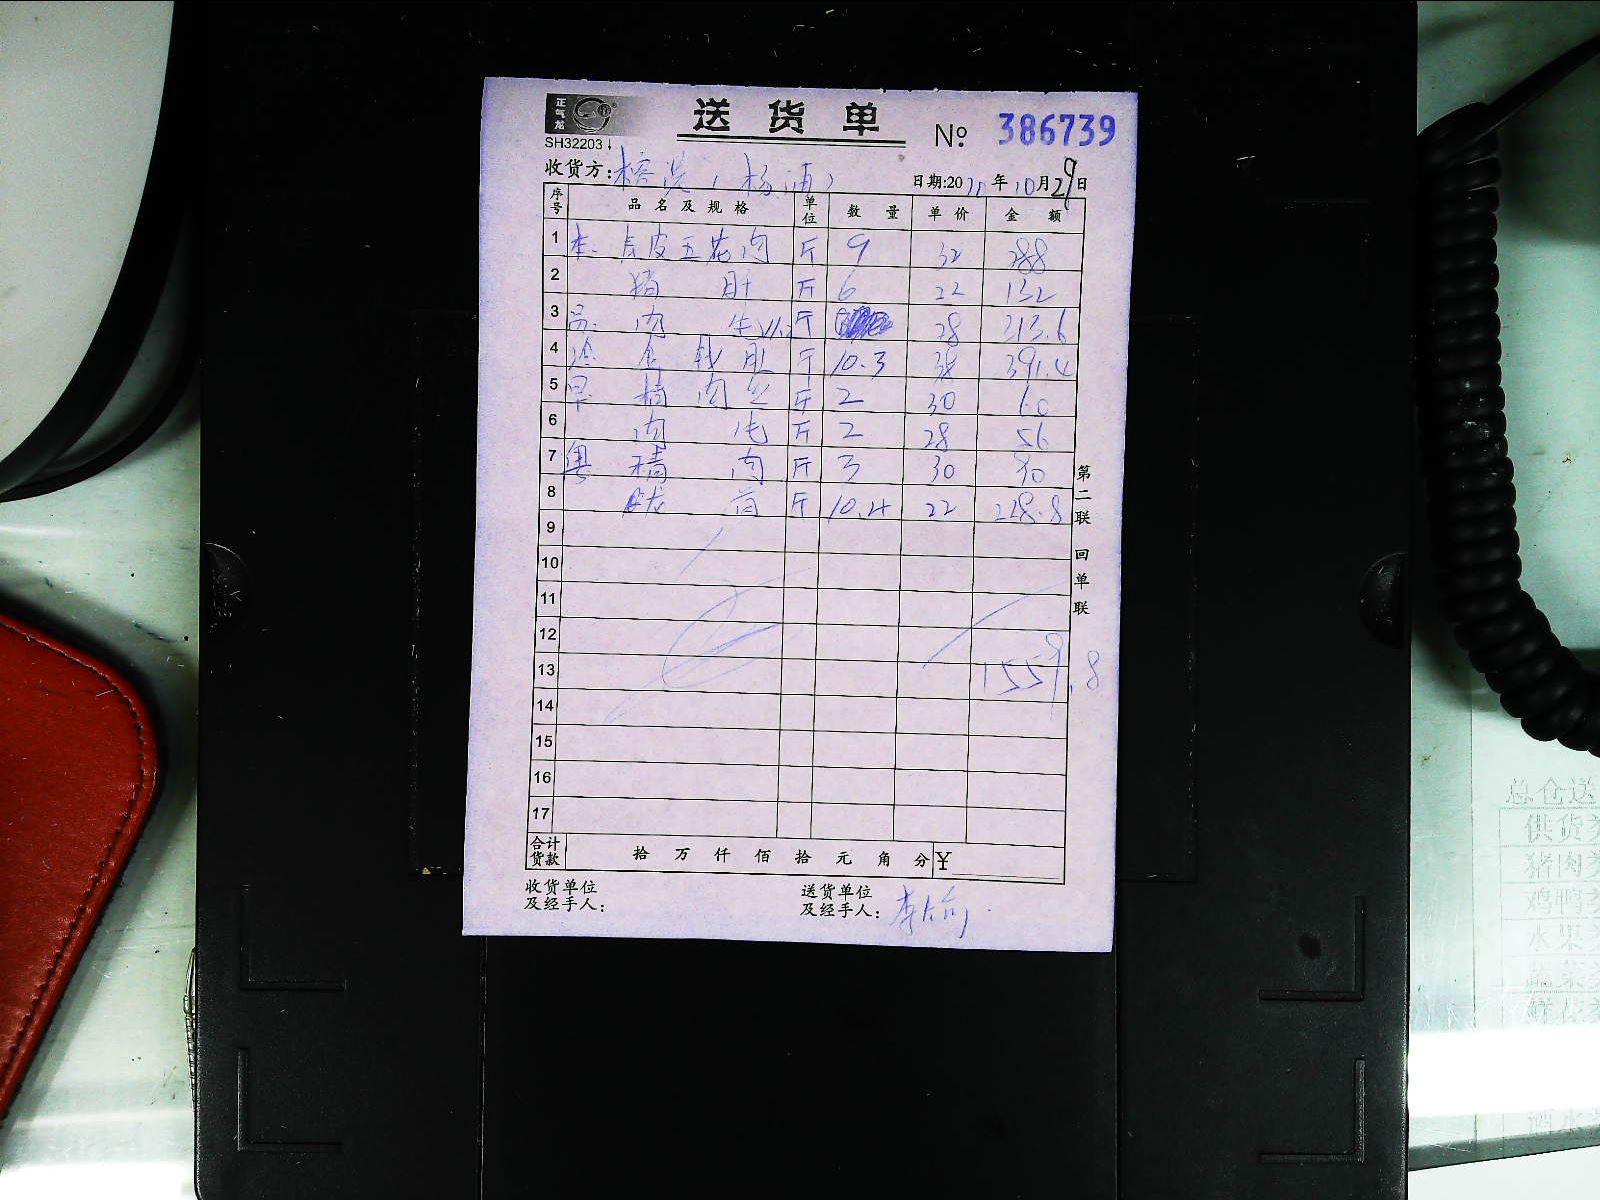 正气龙
送货单
№ 386739
SH32203
收货方: (杨浦)
日期:20 年10月29日
序号 品名及规格 单位 数量 单价 金额
1 本. 皮五花肉 斤 9 32 288
2 猪肝 斤 6 22 132
3 肉 斤 28 313.6
4 金钱肚 斤 10.3 38 391.4
5 早 肉丝 斤 2 30 60
6 肉 斤 2 28 56
7 粤 精肉 斤 3 30 90
8 斤 10.4 22 228.8
9
10
11
12
13 1559.8
14
15
16
17
第二联 回单联
合计货款 拾万仟佰拾元角分 ¥
收货单位及经手人:
送货单位及经手人: 李
总仓送
供货
猪肉
鸡鸭
水果
蔬菜